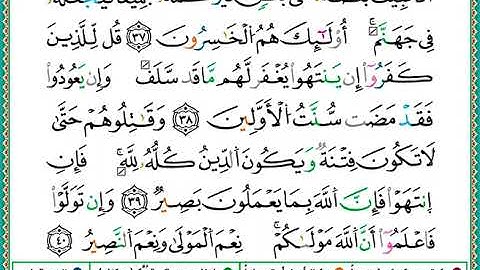 فِى جَهَنَّمَ أُوْلَٰٓئِكَ هُمُ ٱلْخَٰسِرُونَ ٣٧ قُل لِّلَّذِينَ
كَفَرُوٓاْ إِن يَنتَهُواْ يُغْفَرْ لَهُم مَّا قَدْ سَلَفَ وَإِن يَعُودُواْ
فَقَدْ مَضَتْ سُنَّتُ ٱلْأَوَّلِينَ ٣٨ وَقَٰتِلُوهُمْ حَتَّىٰ
لَا تَكُونَ فِتْنَةٌ وَيَكُونَ ٱلدِّينُ كُلُّهُۥ لِلَّهِ ۚ فَإِنِ
ٱنتَهَوْاْ فَإِنَّ ٱللَّهَ بِمَا يَعْمَلُونَ بَصِيرٌ ٣٩ وَإِن تَوَلَّوْاْ
فَٱعْلَمُوٓاْ أَنَّ ٱللَّهَ مَوْلَىٰكُمْ ۚ نِعْمَ ٱلْمَوْلَىٰ وَنِعْمَ ٱلنَّصِيرُ ٤٠